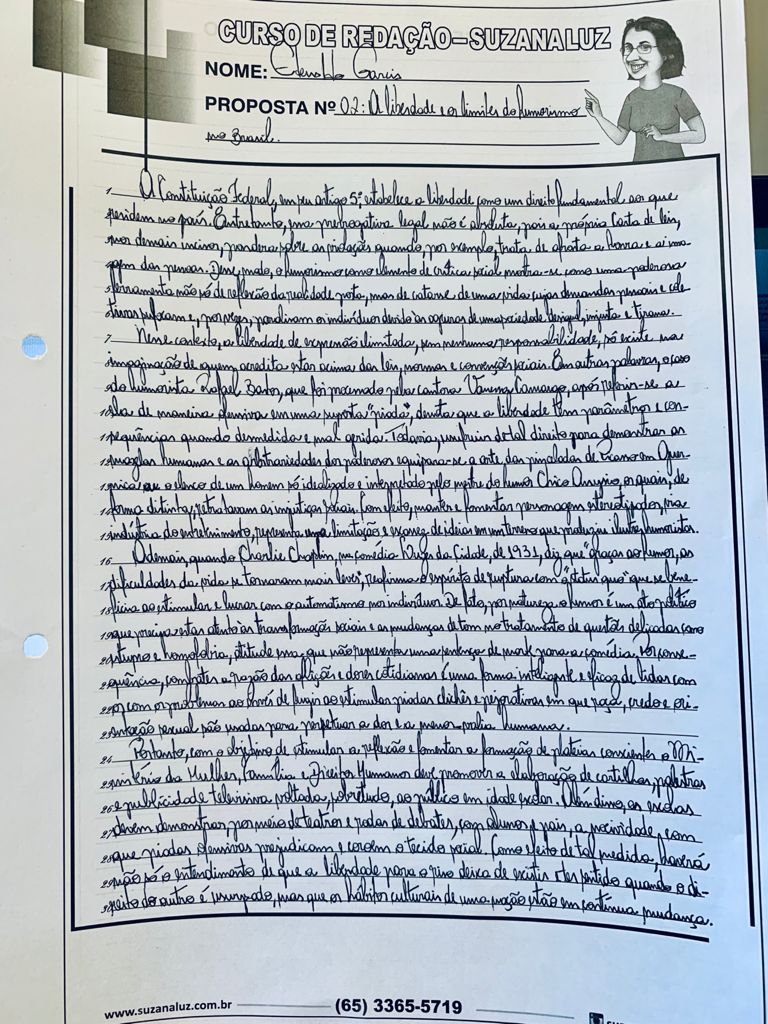 CURSO DE REDAÇÃO – SUZANA LUZ
NOME: Garcia
PROPOSTA Nº 02: A liberdade e os limites do humorismo
no Brasil.
1 A Constituição Federal, em seu artigo 5º, estabelece a liberdade como um direito fundamental aos que
residem no país. Entretanto, essa prerrogativa legal não é absoluta, pois a própria Carta de leis,
nos demais incisos, pondera sobre as violações quando, por exemplo, trata de afronta a honra e a ima-
gem das pessoas. Desse modo, o humorismo como elemento de crítica social mostra-se como uma poderosa
5 ferramenta não só de reflexão da realidade posta, mas de catarse de uma vida cujas demandas pessoais e cole
tivas sufocam e, por vezes, paralisam os indivíduos devido às agruras de uma sociedade desigual, injusta e tirana.
7 Nesse contexto, a liberdade de expressão ilimitada, sem nenhuma responsabilidade, só existe na
imaginação de quem acredita estar acima das leis, normas e convenções sociais. Em outras palavras, o caso
do humorista Rafael Bastos, que foi processado pela cantora Vanessa Camargo, após referir-se a
ela de maneira ofensiva em uma suposta "piada", denota que a liberdade têm parâmetros e con-
sequências quando desmedida e mal gerida. Todavia, usufruir de tal direito para demonstrar as
mazelas humanas e as arbitrariedades dos poderosos equipara-se a arte das pinceladas de Picasso em Guer-
nica ou o elenco de um homem só idealizado e interpretado pelo mestre do humor Chico Anysio, os quais, de
forma distinta, retrataram as injustiças sociais. Com efeito, manter e fomentar personagens estereotipados, na
indústria do entretenimento, representa uma limitação e escassez de ideias em um terreno que produziu ilustres humoristas.
16 Ademais, quando Charlie Chaplin, na comédia Luzes da Cidade, de 1931, diz que "graças ao humor, as
dificuldades da vida se tornaram mais leves", reafirma o espírito de ruptura com o "status quo" que se bene-
ficia ao estimular e lucrar com o automatismo no indivíduo. De fato, por natureza o humor é um ato político
que precisa estar atento às transformações sociais e as mudanças de tom no tratamento de questões delicadas como
estupro e homofobia, atitude essa, que não representa uma sentença de morte para a comédia. Por conse-
quência, combater a razão das aflições e dores cotidianas é uma forma inteligente e eficaz de lidar com
com os problemas ao invés de fugir ao estimular piadas clichês e pejorativas em que raça, credo e ori-
entação sexual são usadas para perpetuar a dor e a menos-valia humana.
24 Portanto, com o objetivo de estimular a reflexão e fomentar a formação de plateias conscientes o Mi-
nistério da Mulher, Família e Direitos Humanos deve promover a elaboração de cartilhas, palestras
e publicidade televisiva voltada, sobretudo, ao público em idade escolar. Além disso, as escolas
devem demonstrar, por meio de teatros e rodas de debates, com alunos e pais, a nocividade, com
que piadas ofensivas prejudicam e corroem o tecido social. Como efeito de tal medida, haverá
não só o entendimento de que a liberdade para o riso deixa de existir e ter sentido quando o di-
reito do outro é usurpado, mas que os hábitos culturais de uma nação estão em contínua mudança.
www.suzanaluz.com.br
(65) 3365-5719